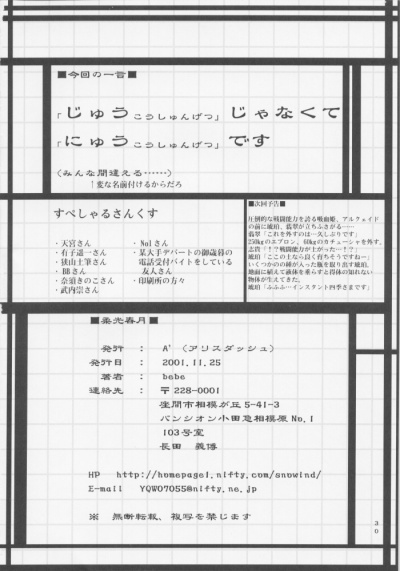 ■今回の一言■
「じゅうこうしゅんげつ」じゃなくて
「にゅうこうしゅんげつ」です
（みんな間違える……）
↑変な名前付けるからだろ
すぺしゃるさんくす
・天宮さん
・有子道一さん
・狭山土筆さん
・BBさん
・奈須きのこさん
・武内崇さん
・No1さん
・某大手デパートの御歳暮の
電話受付バイトをしている
友人さん
・印刷所の方々
■次回予告■
圧倒的な戦闘能力を誇る吸血姫、アルクェイド
の前に琥珀、翡翠が立ちふさがる……
翡翠「これを外すのは…久しぶりです」
250kgのエプロン、60kgのカチューシャを外す。
志貴「！？戦闘能力が上がった…！？」
琥珀「ここの土なら良く育ちそうですね…」
いくつかのの種が入った瓶を取り出す琥珀。
地面に植えて液体を垂らすと得体の知れない
物体が生えてきた。
琥珀「ふふふ…インスタント四季さまです」
■柔光春月■
発行 ： A'（アリスダッシュ）
発行日 ： 2001.11.25
著者 ： bebe
連絡先 ： 〒228-0001
座間市相模が丘5-41-3
パンシオン小田急相模原No.1
103号室
長田 義博
HP http://homepage1.nifty.com/snowind/
E-mail YQW07055@nifty.ne.jp
※ 無断転載、複写を禁じます
30